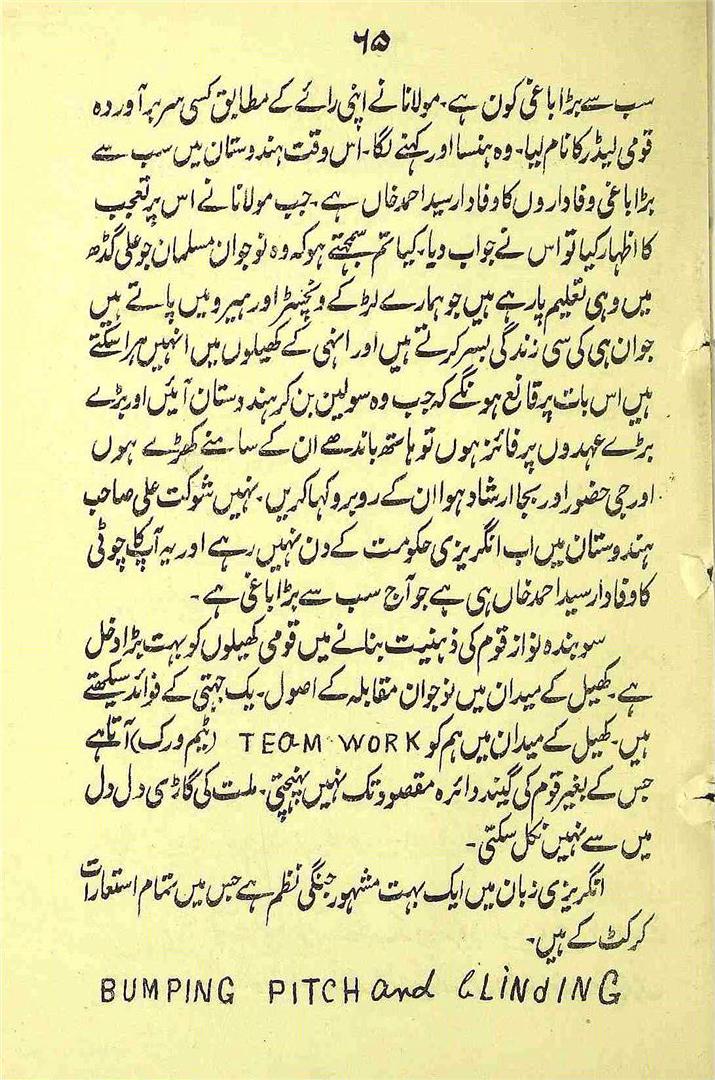 ۶۵
سب سے بڑا باغی کون ہے۔ مولانا نے اپنی رائے کے مطابق کسی سربرآوردہ
قومی لیڈر کا نام لیا۔ وہ ہنسا اور کہنے لگا۔ اس وقت ہندوستان میں سب سے
بڑا باغی وفاداروں کا وفادار سید احمد خاں ہے۔ جب مولانا نے اس پر تعجب
کا اظہار کیا تو اس نے جواب دیا۔ کیا تم سمجھتے ہو کہ وہ نوجوان مسلمان جو علی گڈھ
میں وہی تعلیم پا رہے ہیں جو ہمارے لڑکے ونچسٹر اور ہیرو میں پاتے ہیں
جو ان ہی کی سی زندگی بسر کرتے ہیں اور انہی کے کھیلوں میں انہیں ہرا سکتے
ہیں اس بات پر قانع ہونگے کہ جب وہ سولین بن کر ہندوستان آئیں اور بڑے
بڑے عہدوں پر فائز ہوں تو ہاتھ باندھے ان کے سامنے کھڑے ہوں
اور جی حضور اور بجا ارشاد ہوا ان کے روبرو کہا کریں۔ نہیں شوکت علی صاحب
ہندوستان میں اب انگریزی حکومت کے دن نہیں رہے اور یہ آپ کا چوٹی
کا وفادار سید احمد خاں ہی ہے جو آج سب سے بڑا باغی ہے۔
سو بندہ نواز قوم کی ذہنیت بنانے میں قومی کھیلوں کو بہت بڑا دخل
ہے۔ کھیل کے میدان میں نوجوان مقابلہ کے اصول۔ یک جہتی کے فوائد سیکھتے
ہیں۔ کھیل کے میدان میں ہم کو TEAM WORK (ٹیم ورک) آتا ہے
جس کے بغیر قوم کی گیند دائرہ مقصود تک نہیں پہنچتی۔ ملت کی گاڑی دل دل
میں سے نہیں نکل سکتی۔
انگریزی زبان میں ایک بہت مشہور جنگی نظم ہے جس میں تمام استعارات
کرکٹ کے ہیں۔
BUMPING PITCH and bLINdING